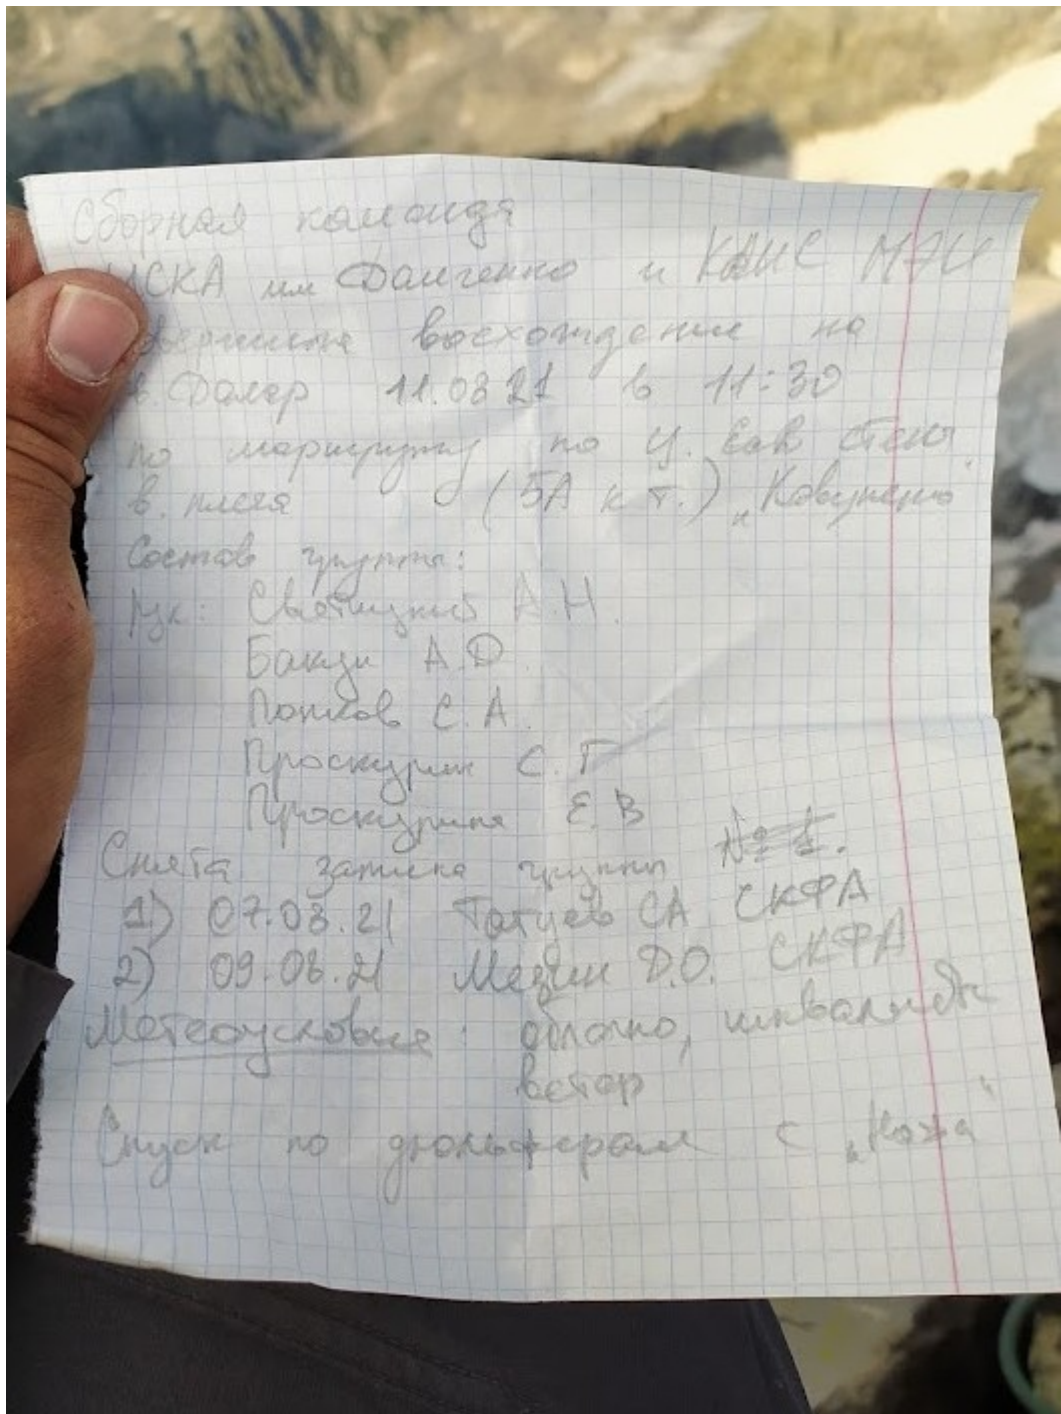 Сборная команда
ЦСКА им Демченко и КАИС МЭИ
совершила восхождение на
в. Далар 11.08 21 в 11:30
по маршруту по ц. сев стены
в. плеча (5А к т.) „Ковуненко"
Состав группы:
рук: Святицкий А.Н.
Бакди А.D.
Попков С.А.
Проскурин С.Г
Проскурина Е.В
Снята записка группы
1) 07.08.21 Татуев СА СКФА
2) 09.08.21 Мезин D.О. СКФА
Метеоусловия: облачно,
ветер
Спуск по дюльферам с „Ножа"